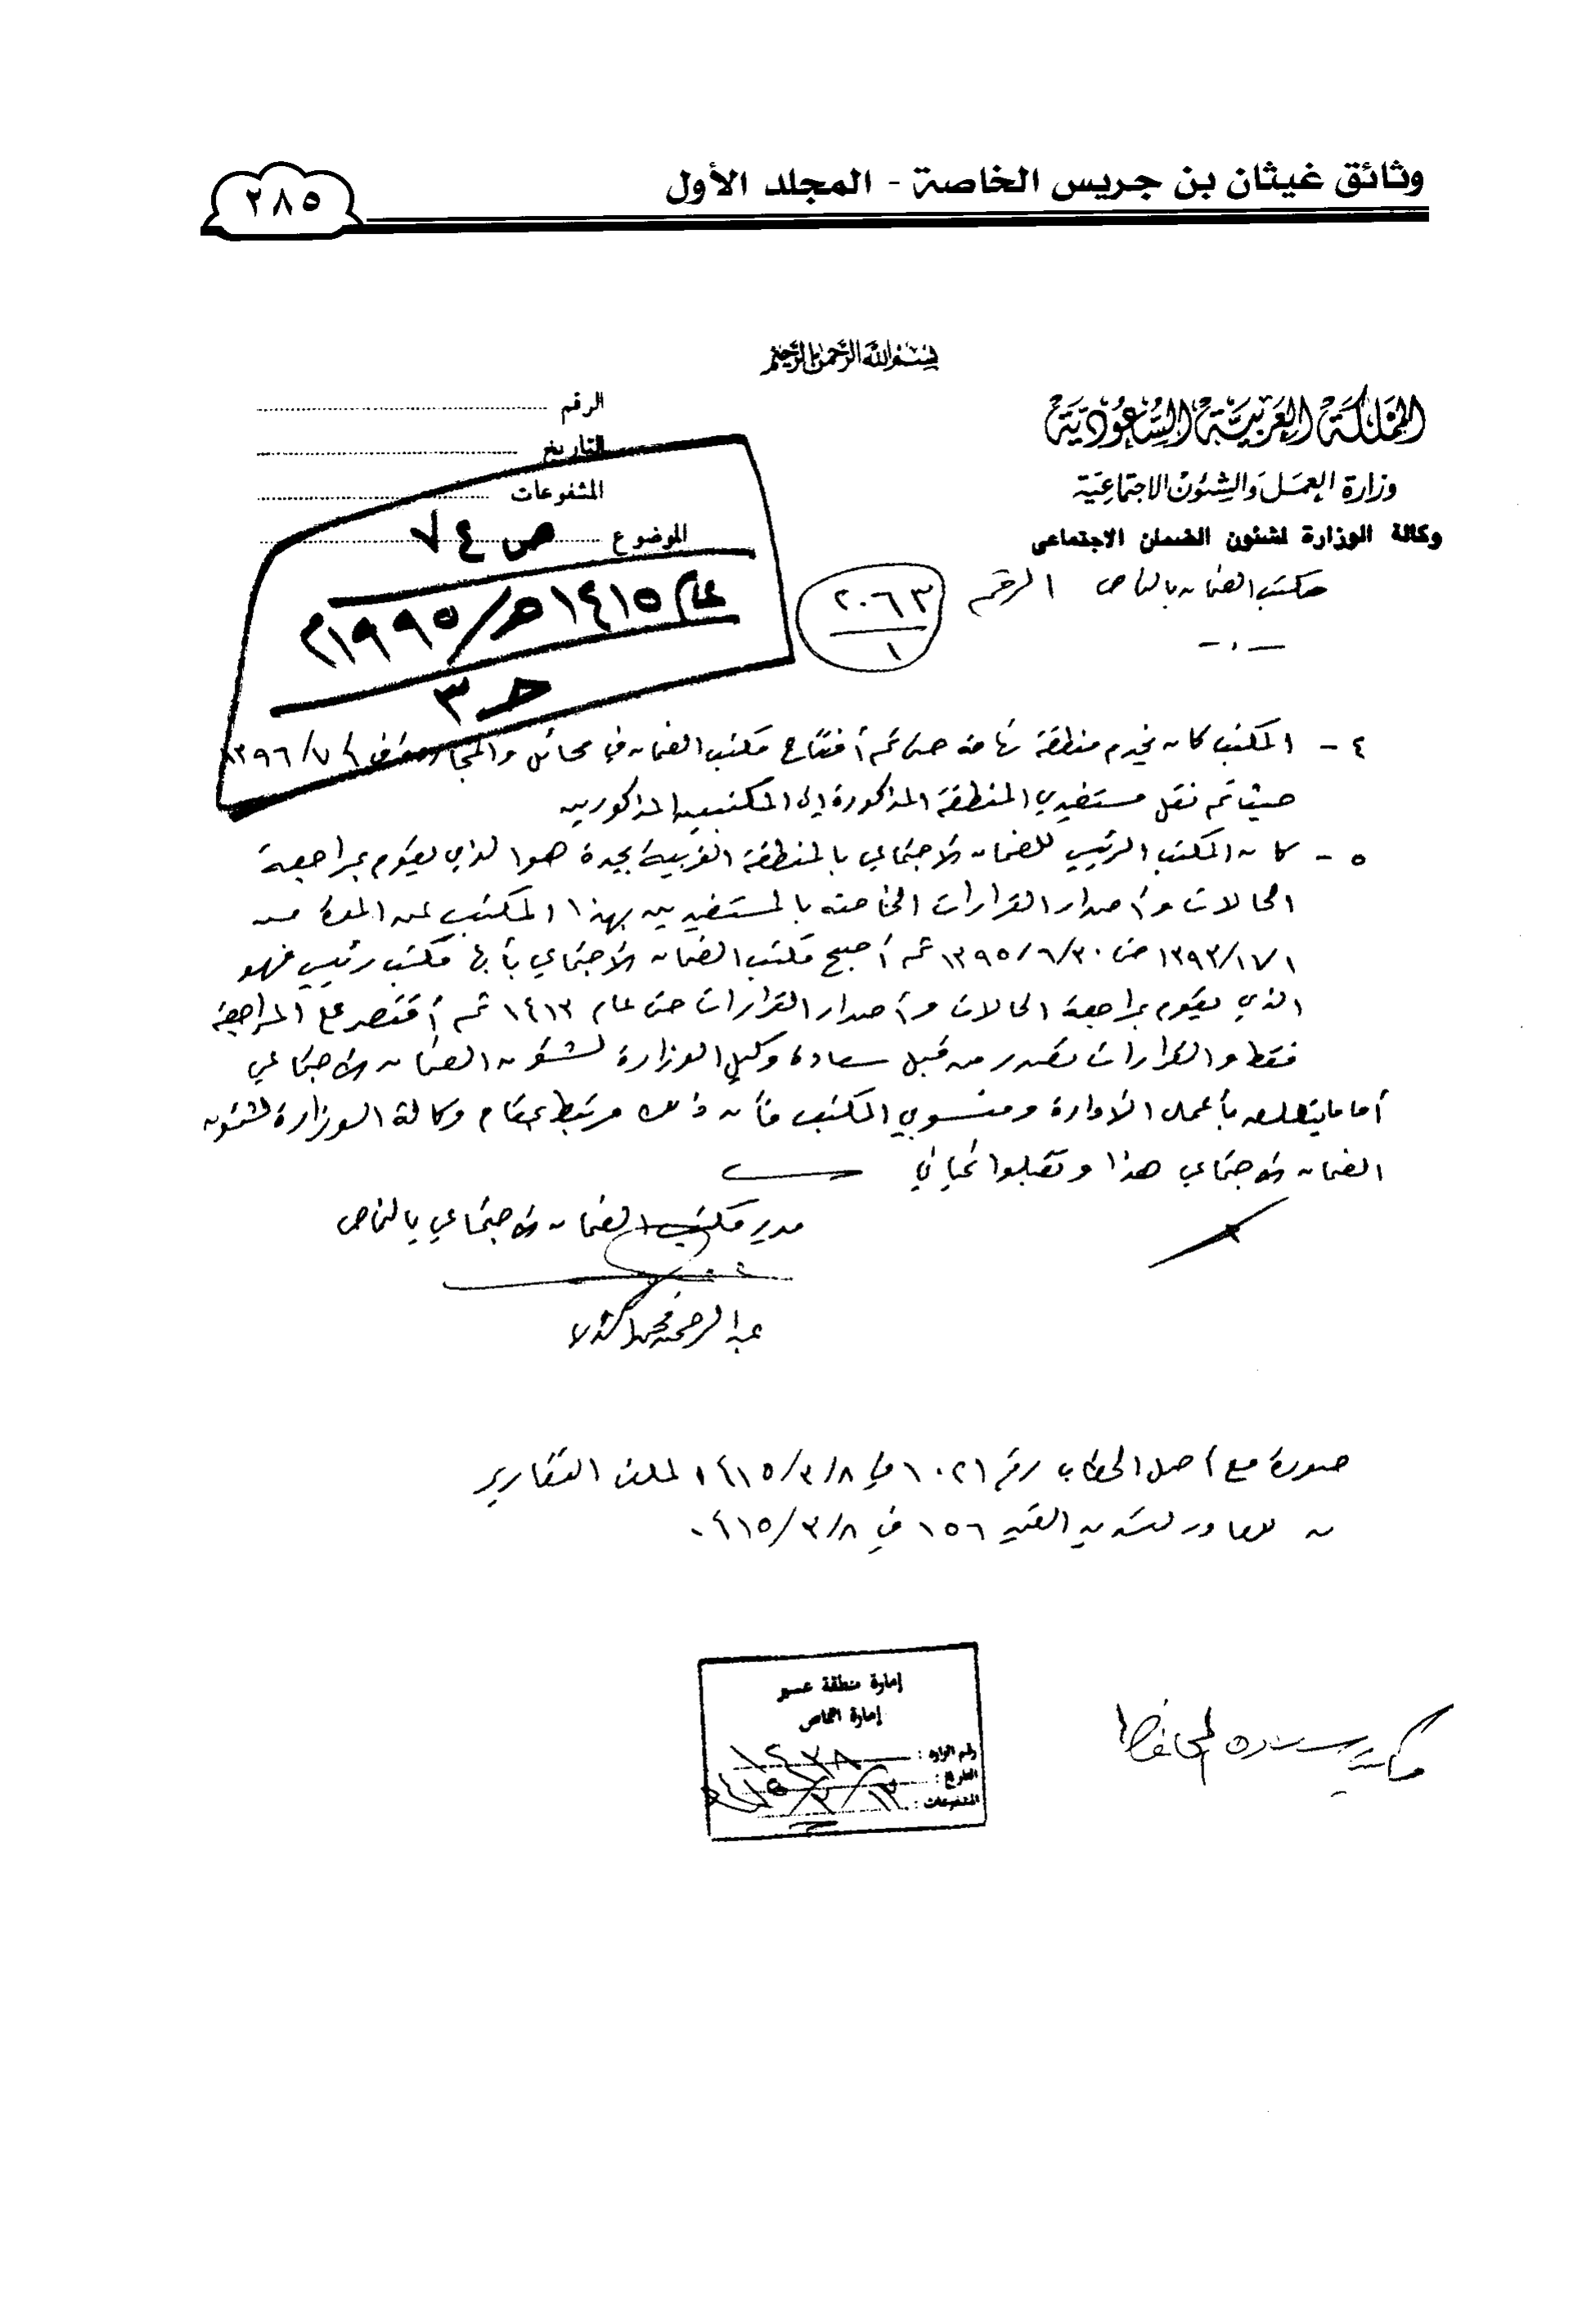 وثائق غيثان بن جريس الخاصة - المجلد الأول
٢٨٥
بسم الله الرحمن الرحيم
المملكة العربية السعودية
وزارة العمل والشئون الاجتماعية
وكالة الوزارة لشئون الضمان الاجتماعى
مكتب الضمان بالنماص الرقم ٢٠٦٣
١
الرقم
التاريخ
المشفوعات
الموضوع
ص ٧٤
عام ١٤١٥هـ/١٩٩٥م
حـ ٣
٤ - المكتب كان يخدم منطقة تهامة حتى تم أفتتاح مكتب الضمان في محائل والمجاردة في ١٣٩٦/٧
حيث تم نقل مستفيدي المنطقة المذكورة إلى المكتبين المذكورين
٥ - كان المكتب الرئيسي للضمان الاجتماعي بالمنطقة الغربية بجدة هو الذي يقوم بمراجعة
الحالات وأصدار القرارات الخاصة بالمستفيدين بهذا المكتب عن المدة من
١٣٩٣/١٧/١ حتى ١٣٩٥/٦/٣٠ ثم أصبح مكتب الضمان الاجتماعي بأبها مكتب رئيسي فهو
الذي يقوم بمراجعة الحالات وأصدار القرارات حتى عام ١٤١٣ ثم أقتصر على المراجعة
فقط والقرارات تصدر من قبل سعادة وكيل الوزارة لشئون الضمان الاجتماعي
أما ما يتعلق بأعمال الأدارة ومنسوبي المكتب فأن ذلك مرتبط بمقام وكالة الوزارة لشئون
الضمان الاجتماعي هذا وتقبلوا تحياتي
مدير مكتب الضمان الاجتماعي بالنماص
عبدالرحمن محمد
صورة مع أصل الخطاب رقم ١٠٢١ في ١٤١٥/٣/٨ لملف التقارير
للصادر لتسديد القيد ١٥٦ في ١٤١٥/٣/٨
إمارة منطقة عسير
إمارة النماص
رقم الوارد : ١٤٣٨
التاريخ : ١٤١٥/٣/١٣
المشفوعات :